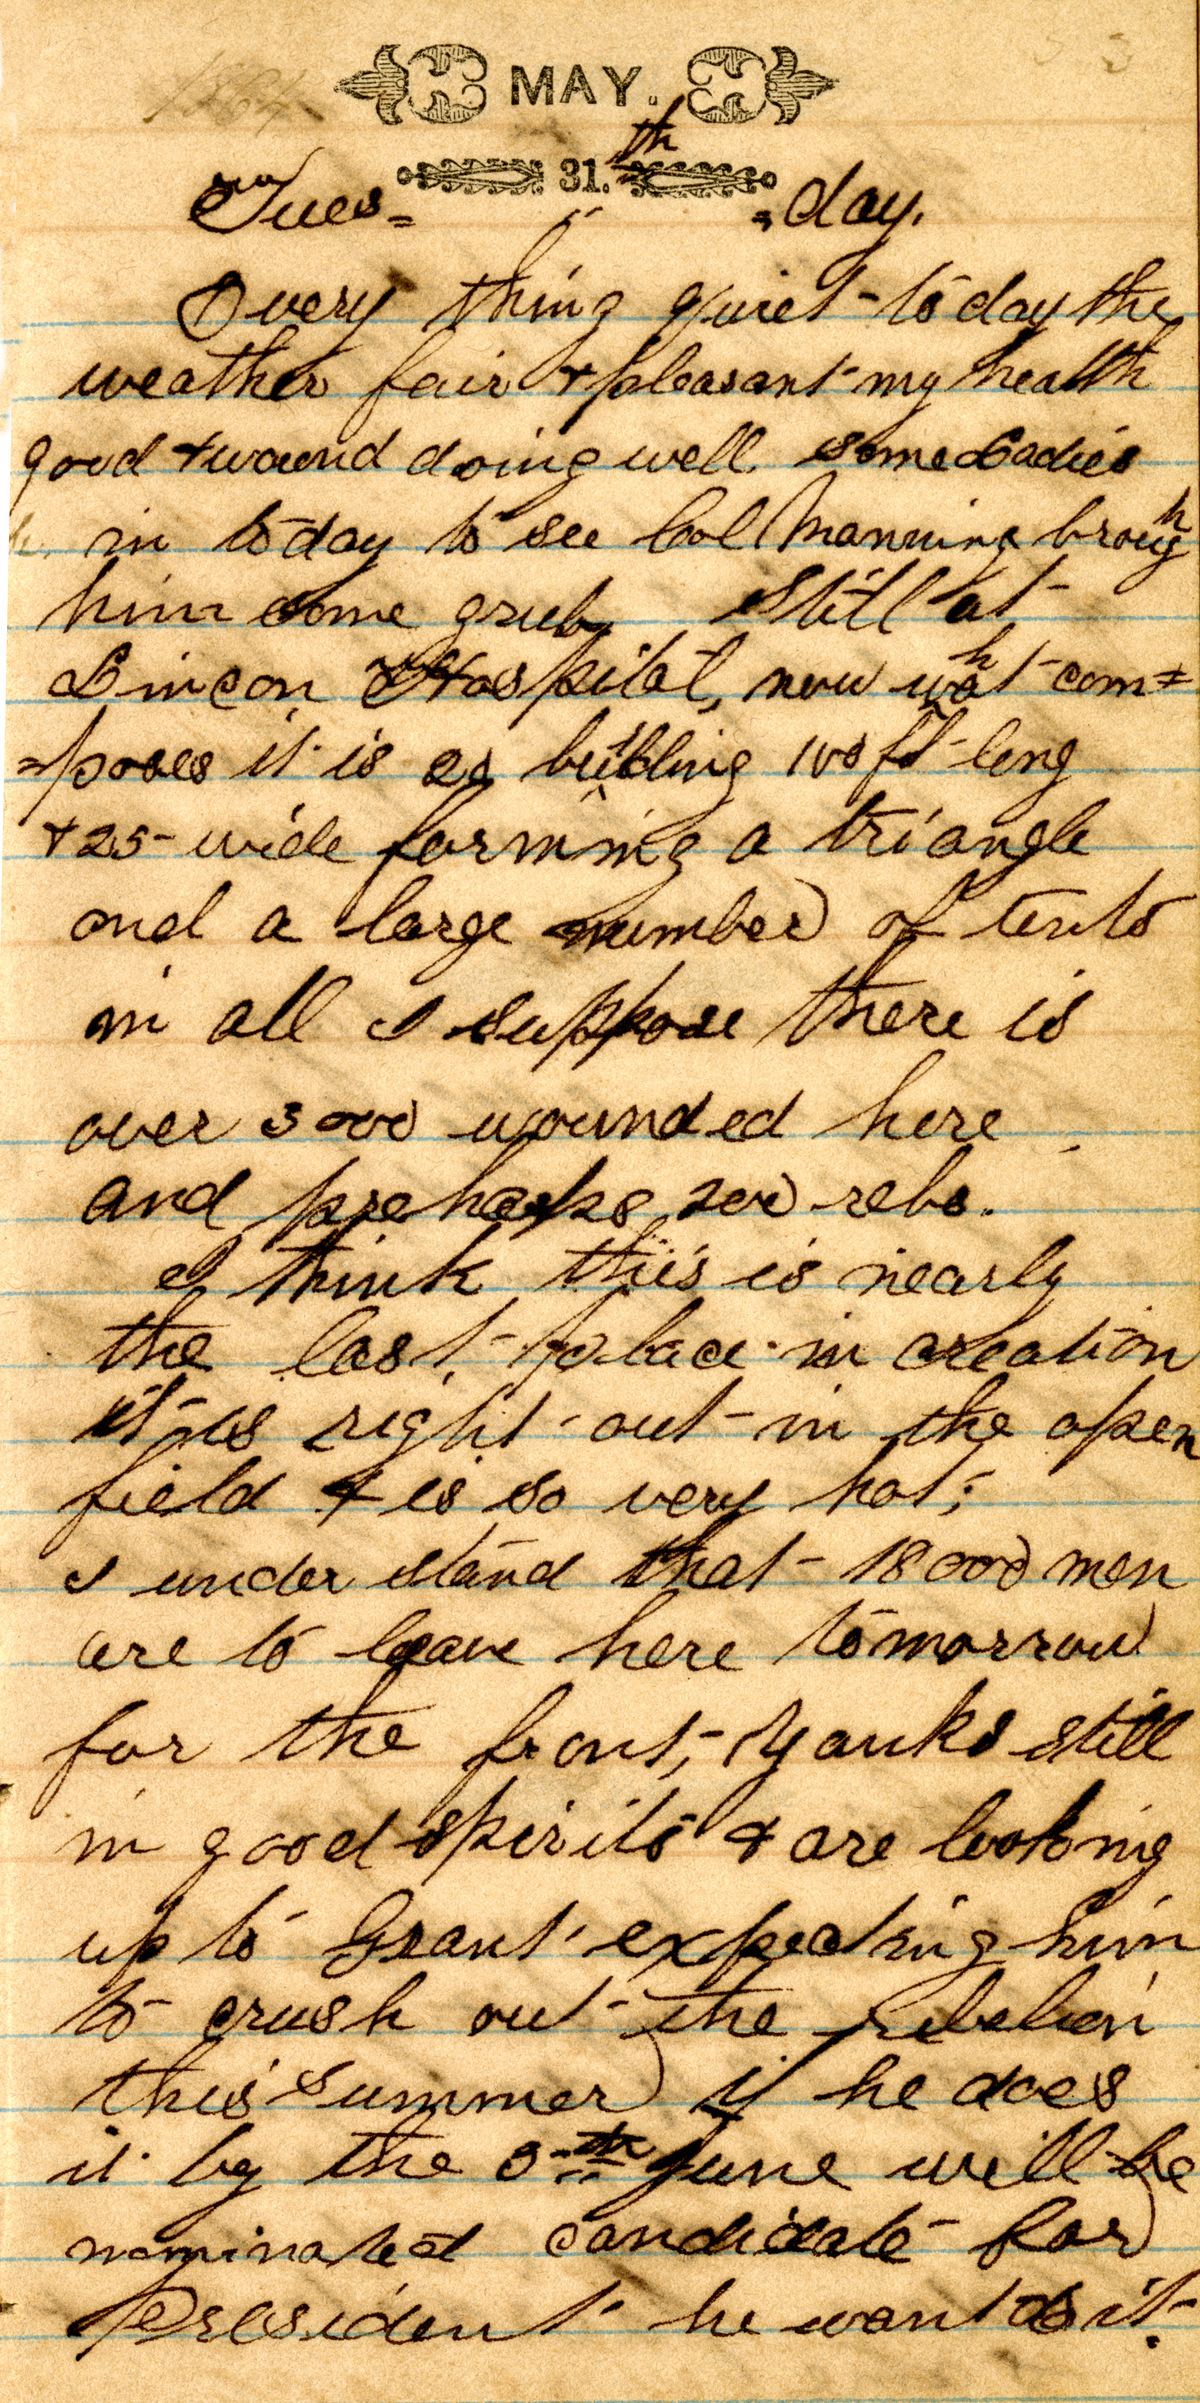 1864
MAY.
31.th
Tues= " =day.
Every thing quiet to day the
weather fair & pleasant my health
good & wound doing well some Ladies
in to day to see Col Manning brough
him some grub, Still at
Lincon Hospital, now what com=
=poses it it is 20 buildling 100 ft long
& 25 wide forming a triangle
and a large number of tents
in all I suppose there is
over 3000 wounded here
and prehaps 200 rebs.
I think this is nearly
the last place in creation
it is right out in the open
field & is so very hot;
I under stand that 18000 men
are to leave here tomorrow
for the front, Yanks still
in good spirits & are looking
up to Grant expecting him
to crush out the rebelion
this summer if he does
it by the th June will be
nominated candidate for
President he wants it.